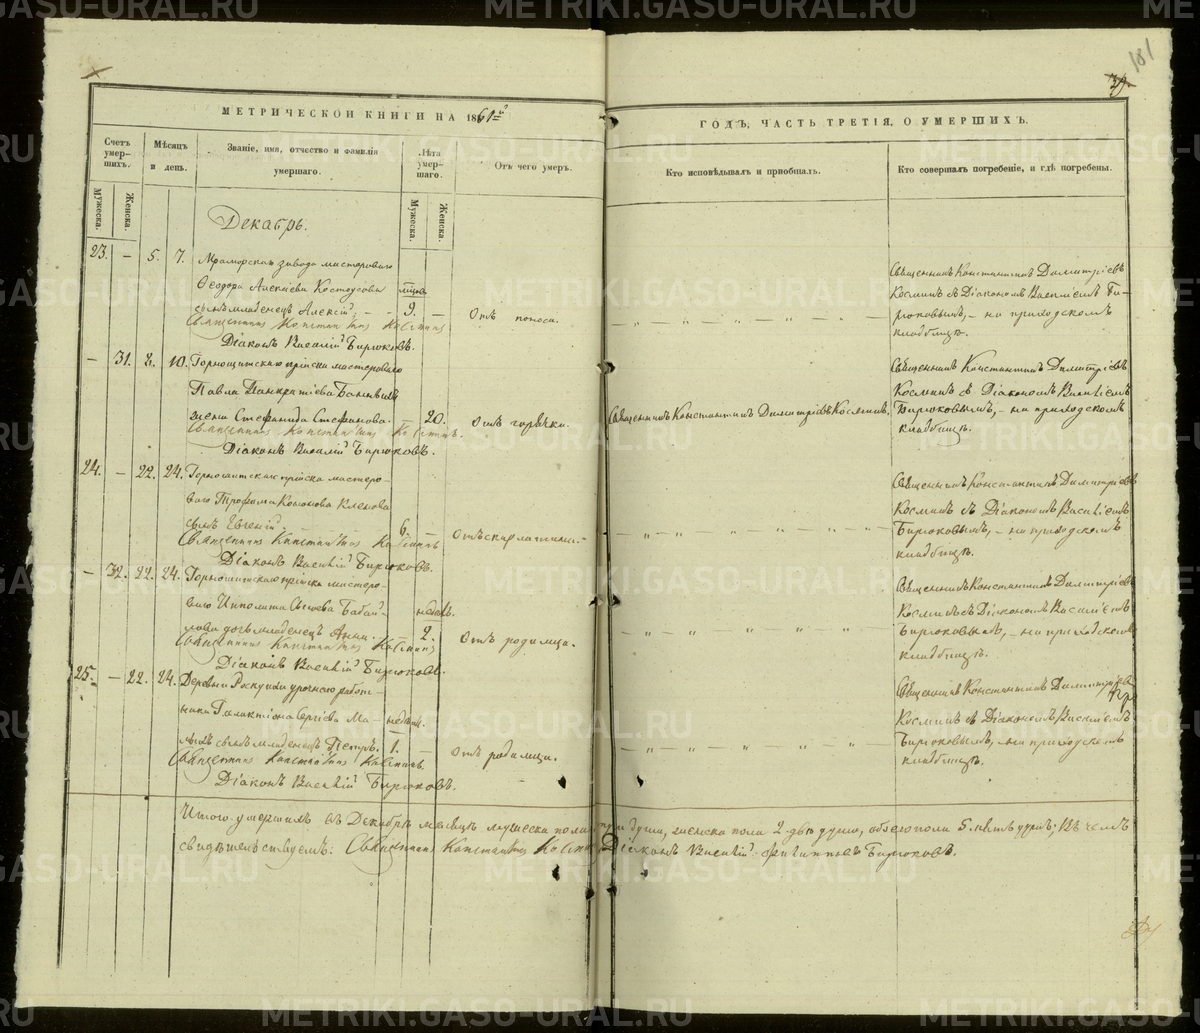 181
39.
МЕТРИЧЕСКОЙ КНИГИ НА 1861й
ГОДЪ, ЧАСТЬ ТРЕТІЯ, О УМЕРШИХЪ.
Счетъ умер-шихъ.
Мужеска.
Женска.
Мѣсяцъ и день.
Званіе, имя, отчество и фамилія умершаго.
Лѣта умер-шаго.
Мужеска.
Женска.
Отъ чего умеръ.
Кто исповѣдывалъ и пріобщалъ.
Кто совершалъ погребеніе, и гдѣ погребены.
Декабрь.
23. — 5. 7. Мраморскаго завода мастероваго
Ѳеодора Алексѣева Костоусова мѣсяц.
сынъ младенецъ Алексій, — 9. — Отъ поноса.
Священникъ Константинъ Косминъ
Діаконъ Василій Бирюковъ.
Священникъ Константинъ Димитріевъ
Косминъ съ Діакономъ Василіемъ Би-
рюковымъ, — на приходскомъ
кладбищѣ.
— 31. 8. 10. Горнощитскаго пріиска мастероваго
Павла Панкратіева
жена Стефанида Стефанова. 20. Отъ горячки. Священникъ Константинъ Димитріевъ Косминъ.
Священникъ Константинъ Косминъ.
Діаконъ Василій Бирюковъ.
Священникъ Константинъ Димитріевъ
Косминъ съ Діакономъ Василіемъ
Бирюковымъ, — на приходскомъ
кладбищѣ.
24. — 22. 24. Горнощитскаго пріиска мастеро-
ваго Трофима Кононова
сынъ Евгеній. 6. — Отъ скарлатины.
Священникъ Константинъ Косминъ
Діаконъ Василій Бирюковъ.
Священникъ Константинъ Димитріевъ
Косминъ съ Діакономъ Василіемъ
Бирюковымъ, — на приходскомъ
кладбищѣ.
— 32. 22. 24. Горнощитскаго пріиска мастеро-
ваго Ипполита Сысоева Бабай-
лова дочь младенецъ Анна. недѣль. 2. Отъ родимца.
Священникъ Константинъ Косминъ
Діаконъ Василій Бирюковъ.
Священникъ Константинъ Димитріевъ
Косминъ съ Діакономъ Василіемъ
Бирюковымъ, — на приходскомъ
кладбищѣ.
25. — 22. 24. Деревни Роскухи урочнаго работ-
ника Галактіона Сергіева Ма- недѣли.
сынъ младенецъ Петръ. 1. — Отъ родимца.
Священникъ Константинъ Косминъ.
Діаконъ Василій Бирюковъ.
Священникъ Константинъ Димитріевъ
Косминъ съ Діакономъ Василіемъ
Бирюковымъ, на приходскомъ
кладбищѣ.
Итого умершихъ въ Декабрѣ мѣсяцѣ мужеска пола три души, женска пола 2. двѣ души, обоего пола 5. пять душъ; въ чемъ
свидѣтельствуемъ: Священникъ Константинъ Косминъ Діаконъ Василій Бирюковъ.
METRIKI.GASO-URAL.RU